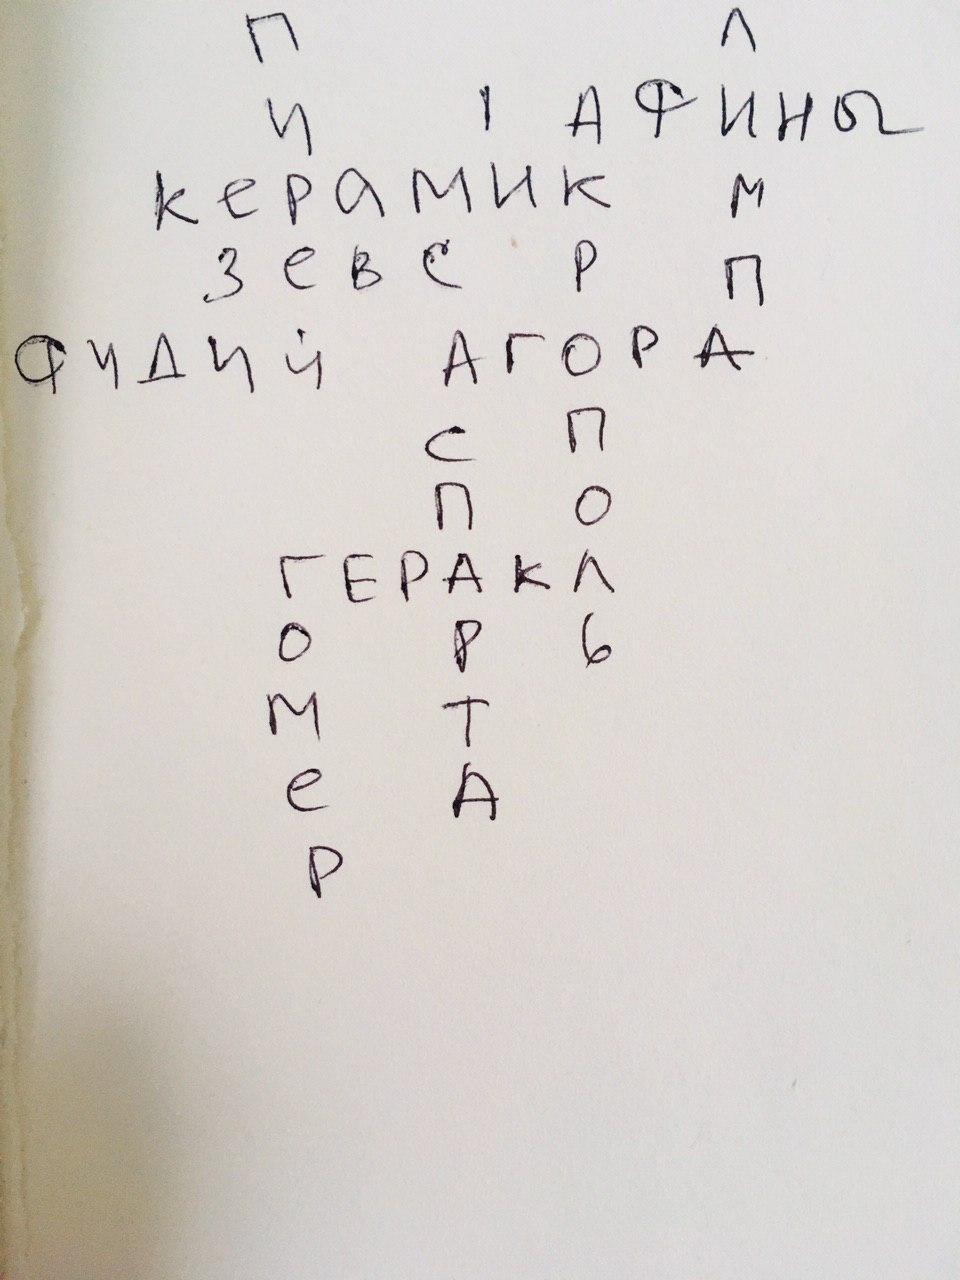 П Л
И 1 АФИНЫ
керамик М
зевс Р П
ФИДИЙ АГОРА
С П
П О
ГЕРАКЛ
О Р Ь
М Т
е А
Р